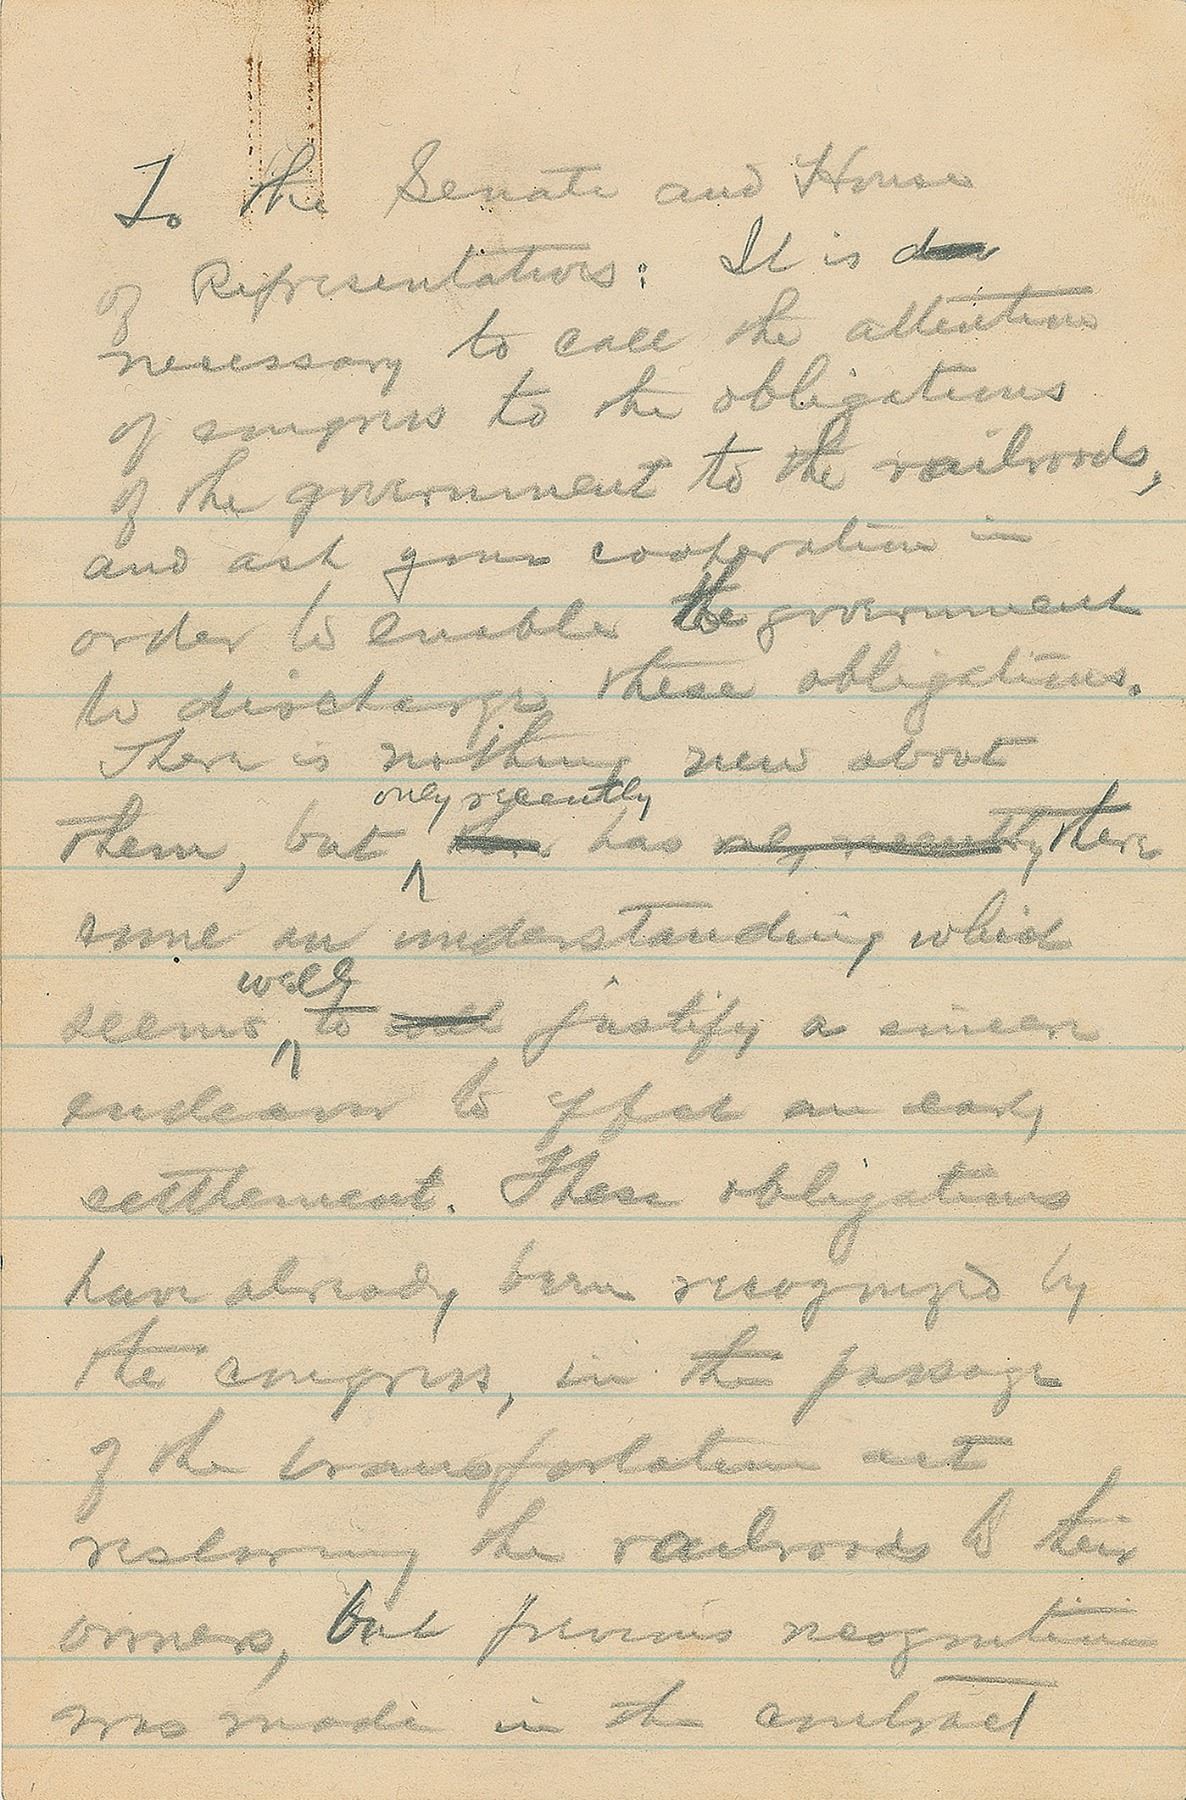 To the Senate and House
of Representatives: It is
necessary to call the attention
of congress to the obligations
of the government to the railroads,
and ask your cooperation in
order to enable the government
to discharge these obligations.
There is nothing new about
them, but has there
only recently
come an understanding which
well
seems to justify a sincere
endeavor to effect an early
settlement. These obligations
have already been recognized by
the congress, in the passage
of the transportation act
restoring the railroads to their
owners, but previous recognition
was made in the contract